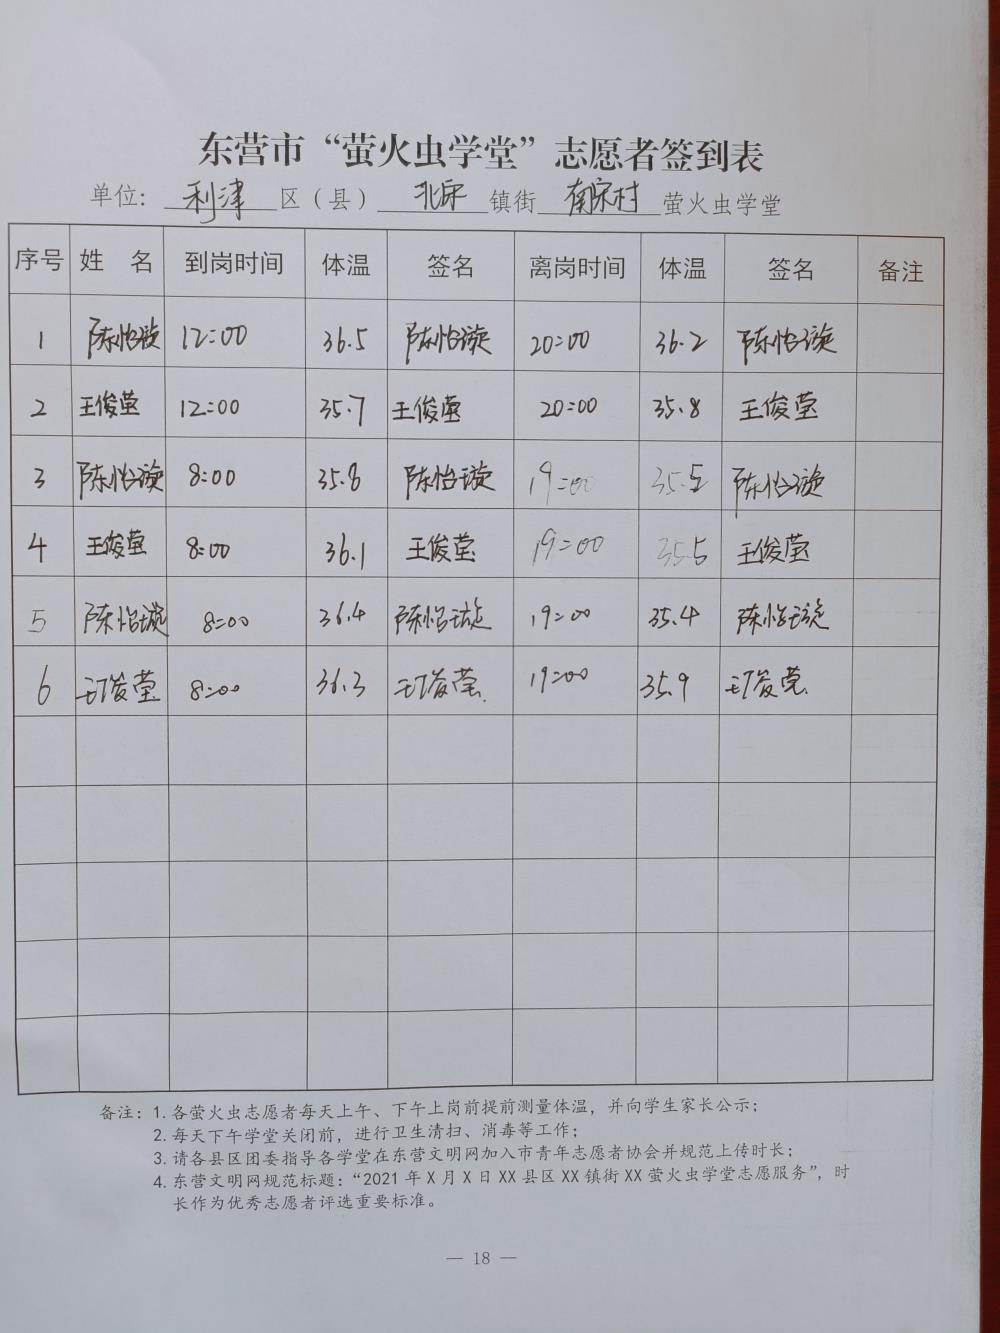 东营市“萤火虫学堂”志愿者签到表
单位: 利津 区(县) 北宋 镇街 南宋村 萤火虫学堂
序号 姓 名 到岗时间 体温 签名 离岗时间 体温 签名 备注
1 陈怡璇 12:00 36.5 陈怡璇 20:00 36.2 陈怡璇
2 王俊莹 12:00 35.7 王俊莹 20:00 35.8 王俊莹
3 陈怡璇 8:00 35.8 陈怡璇 19:00 35.5 陈怡璇
4 王俊莹 8:00 36.1 王俊莹 19:00 35.5 王俊莹
5 陈怡璇 8:00 36.4 陈怡璇 19:00 35.4 陈怡璇
6 王俊莹 8:00 36.3 王俊莹 19:00 35.9 王俊莹
备注: 1. 各萤火虫志愿者每天上午、下午上岗前提前测量体温,并向学生家长公示;
2. 每天下午学堂关闭前,进行卫生清扫、消毒等工作;
3. 请各县区团委指导各学堂在东营文明网加入市青年志愿者协会并规范上传时长;
4. 东营文明网规范标题:“2021 年 X 月 X 日 XX 县区 XX 镇街 XX 萤火虫学堂志愿服务”,时
长作为优秀志愿者评选重要标准。
— 18 —